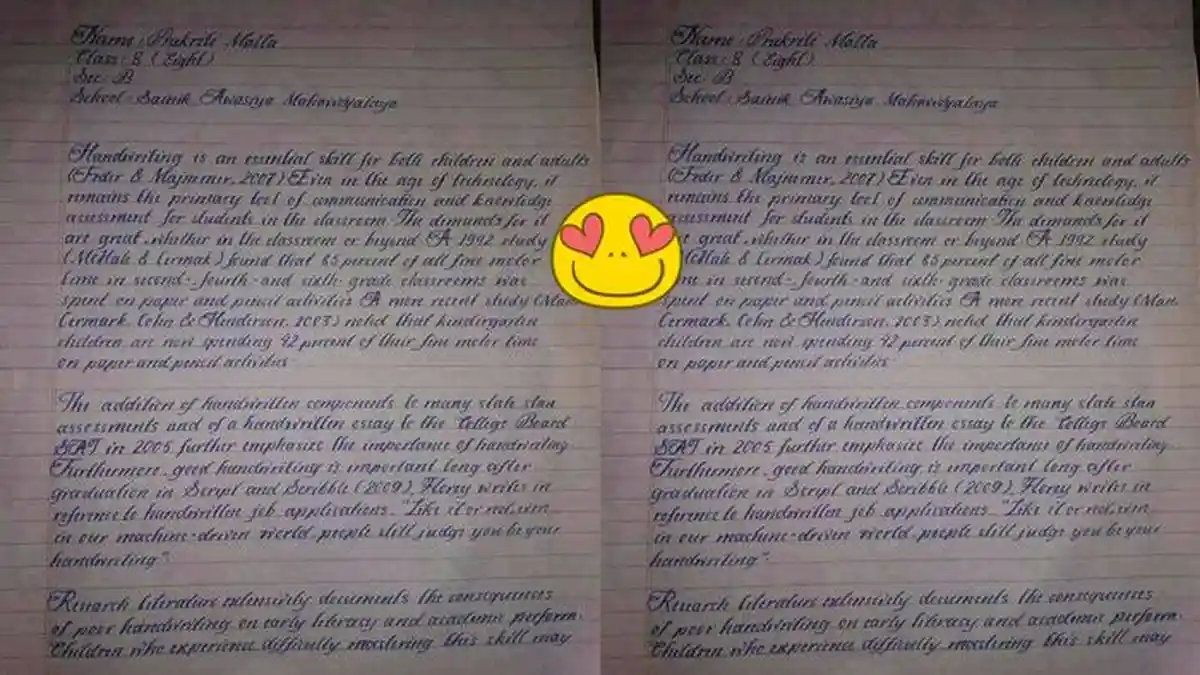 Name : Prakriti Malla
Class : 8 (Eight)
Sec : B
School : Sainik Awasiya Mahavidyalaya
Handwriting is an essential skill for both children and adults
(Feder & Majnemer, 2007) Even in the age of technology, it
remains the primary tool of communication and knowledge
assessment for students in the classroom. The demands for it
are great, whether in the classroom or beyond A 1992 study
(McHale & Cermak) found that 85 percent of all fine motor
time in second-, fourth-and sixth-grade classrooms was
spent on paper and pencil activities A more recent study (Marr
Cermark, Cohn & Henderson, 2003) noted that kindergarten
children are now spending 42 percent of their fine motor time
on paper and pencil activities
The addition of handwritten components to many state stan
assessments and of a handwritten essay to the College Board
SAT in 2005 further emphasize the importance of handwriting
Furthermore, good handwriting is important long after
graduation in Script and Scribble (2009), Florey writes in
reference to handwritten job applications. "Like it or not, even
in our machine-driven world, people still judge you by your
handwriting".
Research literature extensively documents the consequences
of poor handwriting on early literacy and academic perform.
Children who experience difficulty mastering this skill may
Name : Prakriti Malla
Class : 8 (Eight)
Sec : B
School : Sainik Awasiya Mahavidyalaya
Handwriting is an essential skill for both children and adults
(Feder & Majnemer, 2007) Even in the age of technology, it
remains the primary tool of communication and knowledge
assessment for students in the classroom. The demands for it
great, whether in the classroom or beyond A 1992 study
& Cermak) found that 85 percent of all fine motor
in second-, fourth-and sixth-grade classrooms was
spent on paper and pencil activities A more recent study (Marr
Cermark, Cohn & Henderson, 2003) noted that kindergarten
children are now spending 42 percent of their fine motor time
on paper and pencil activities
The addition of handwritten components to many state stan
assessments and of a handwritten essay to the College Board
SAT in 2005 further emphasize the importance of handwriting
Furthermore, good handwriting is important long after
graduation in Script and Scribble (2009), Florey writes in
reference to handwritten job applications. "Like it or not, even
in our machine-driven world, people still judge you by your
handwriting".
Research literature extensively documents the consequences
of poor handwriting on early literacy and academic perform.
Children who experience difficulty mastering this skill may